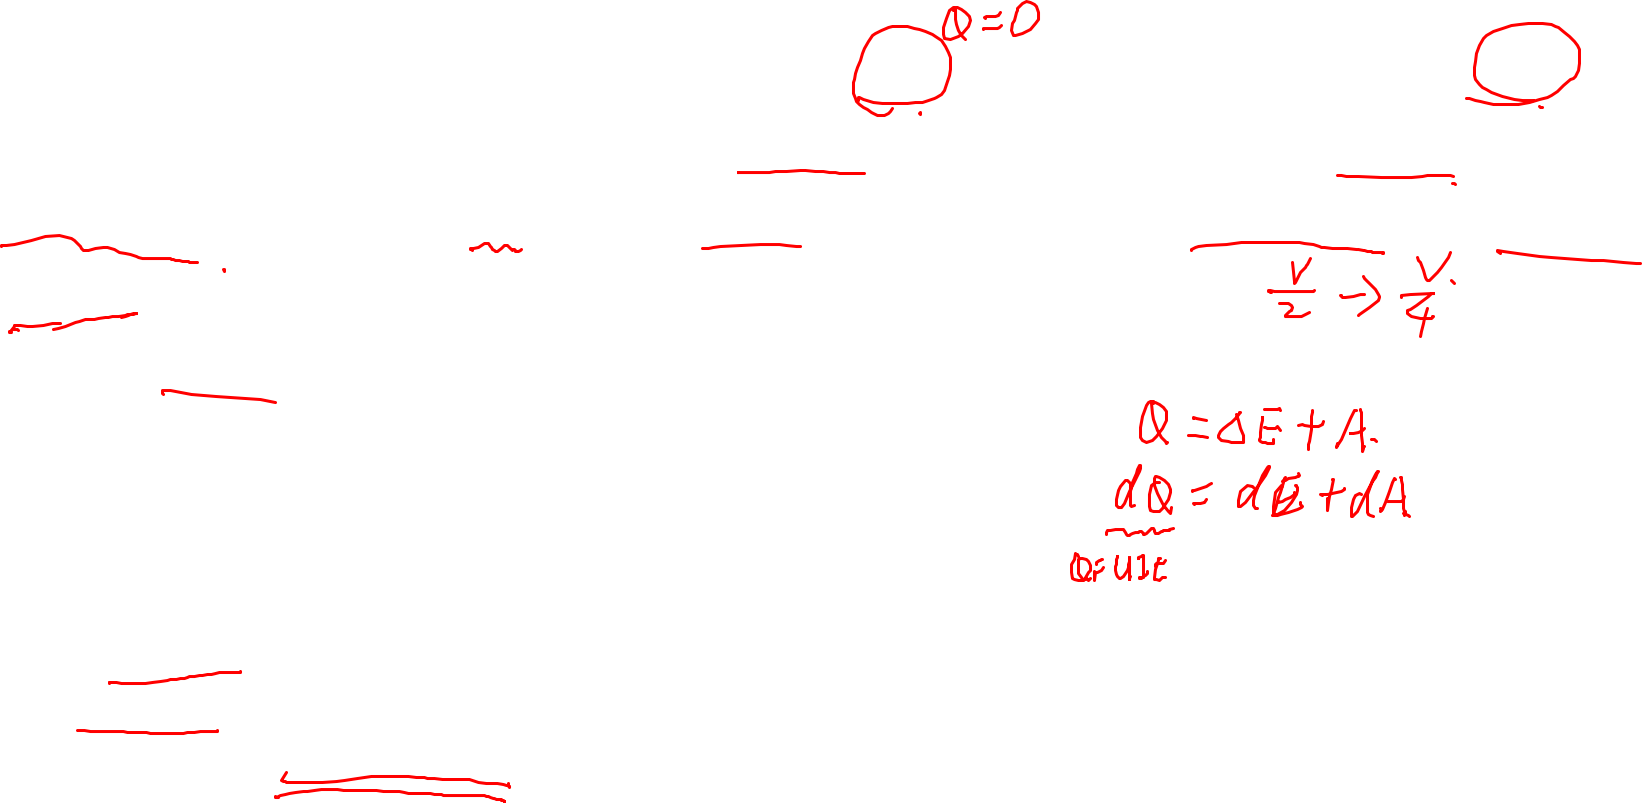 Q=0
V/2 → V/4
Q=ΔE+A
dQ=dE+dA
Q=UIt